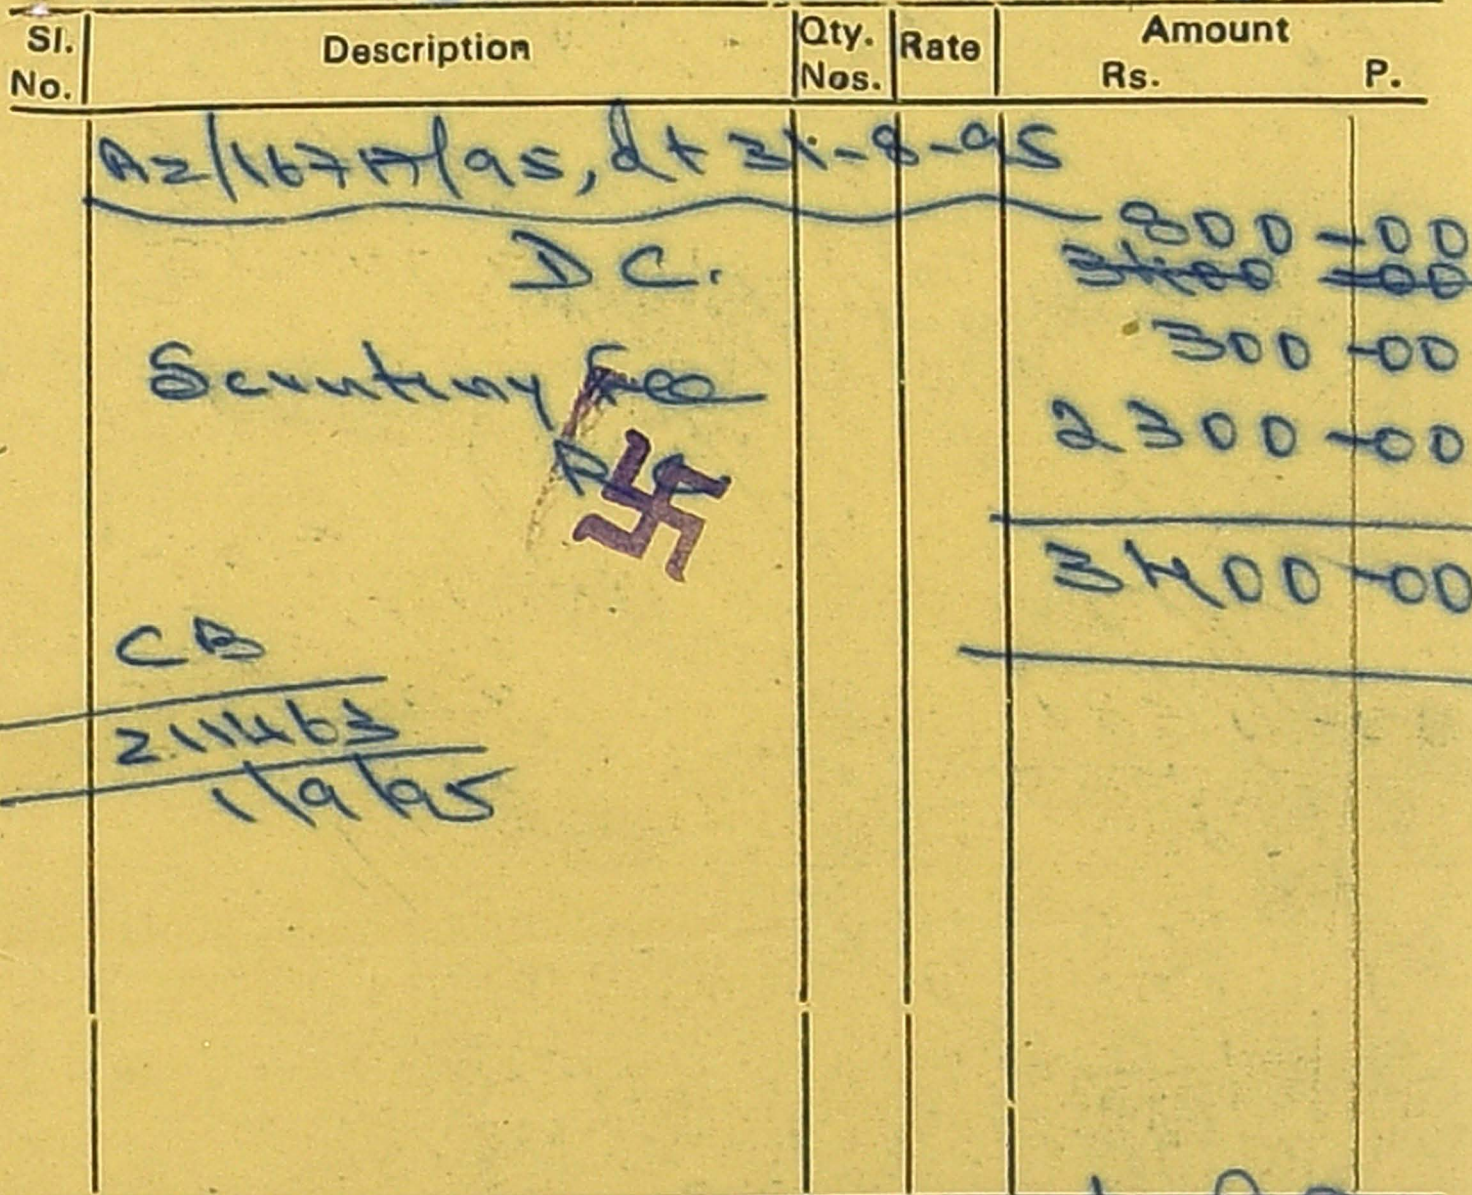 Sl. No. Description Qty. Nos. Rate Amount Rs. P.
A2/1677/95, dt 31-8-95
D C. 800-00
3400-00
Scrutiny Fee 300-00
2300-00
3400-00
CB
211463
1/9/95